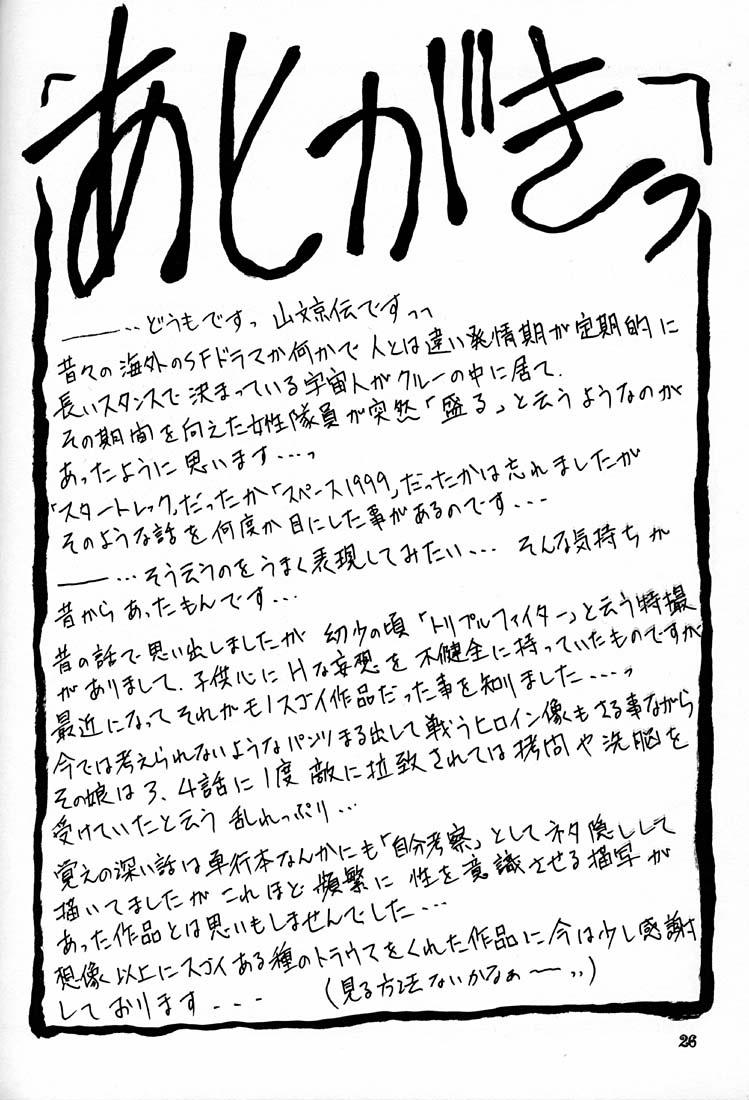 「あとがきっ」
――‥どうもですっ 山文京伝ですっっ
昔々の海外のSFドラマか何かで人とは違い発情期が定期的に
長いスタンスで決まっている宇宙人がクルーの中に居て.
その期間を向えた女性隊員が突然「盛る」と云うようなのが
あったように思います…っ
「スタートレック」だったか「スペース1999」だったかは忘れましたが
そのような話を何度か目にした事があるのです...
――…そう云うのをうまく表現してみたい… そんな気持ちが
昔からあったもんです…
昔の話で思い出しましたが 幼少の頃「トリプルファイター」と云う特撮
がありまして.子供心にHな妄想を不健全に持っていたものですが
最近になってそれがモノスゴイ作品だった事を知りました....っ
今では考えられないようなパンツまる出しで戦うヒロイン像もさる事ながら
その娘は3、4話に1度 敵に拉致されては拷問や洗脳を
受けていたと云う 乱れっぷり…
覚えの深い話は単行本なんかにも「自分考察」としてネタ隠しして
描いてましたが これほど頻繁に 性を意識させる描写が
あった作品とは思いもしませんでした…
想像以上にスゴイある種のトラウマをくれた作品に今は少し感謝
しております... (見る方法ないかなぁ――っっ)
26